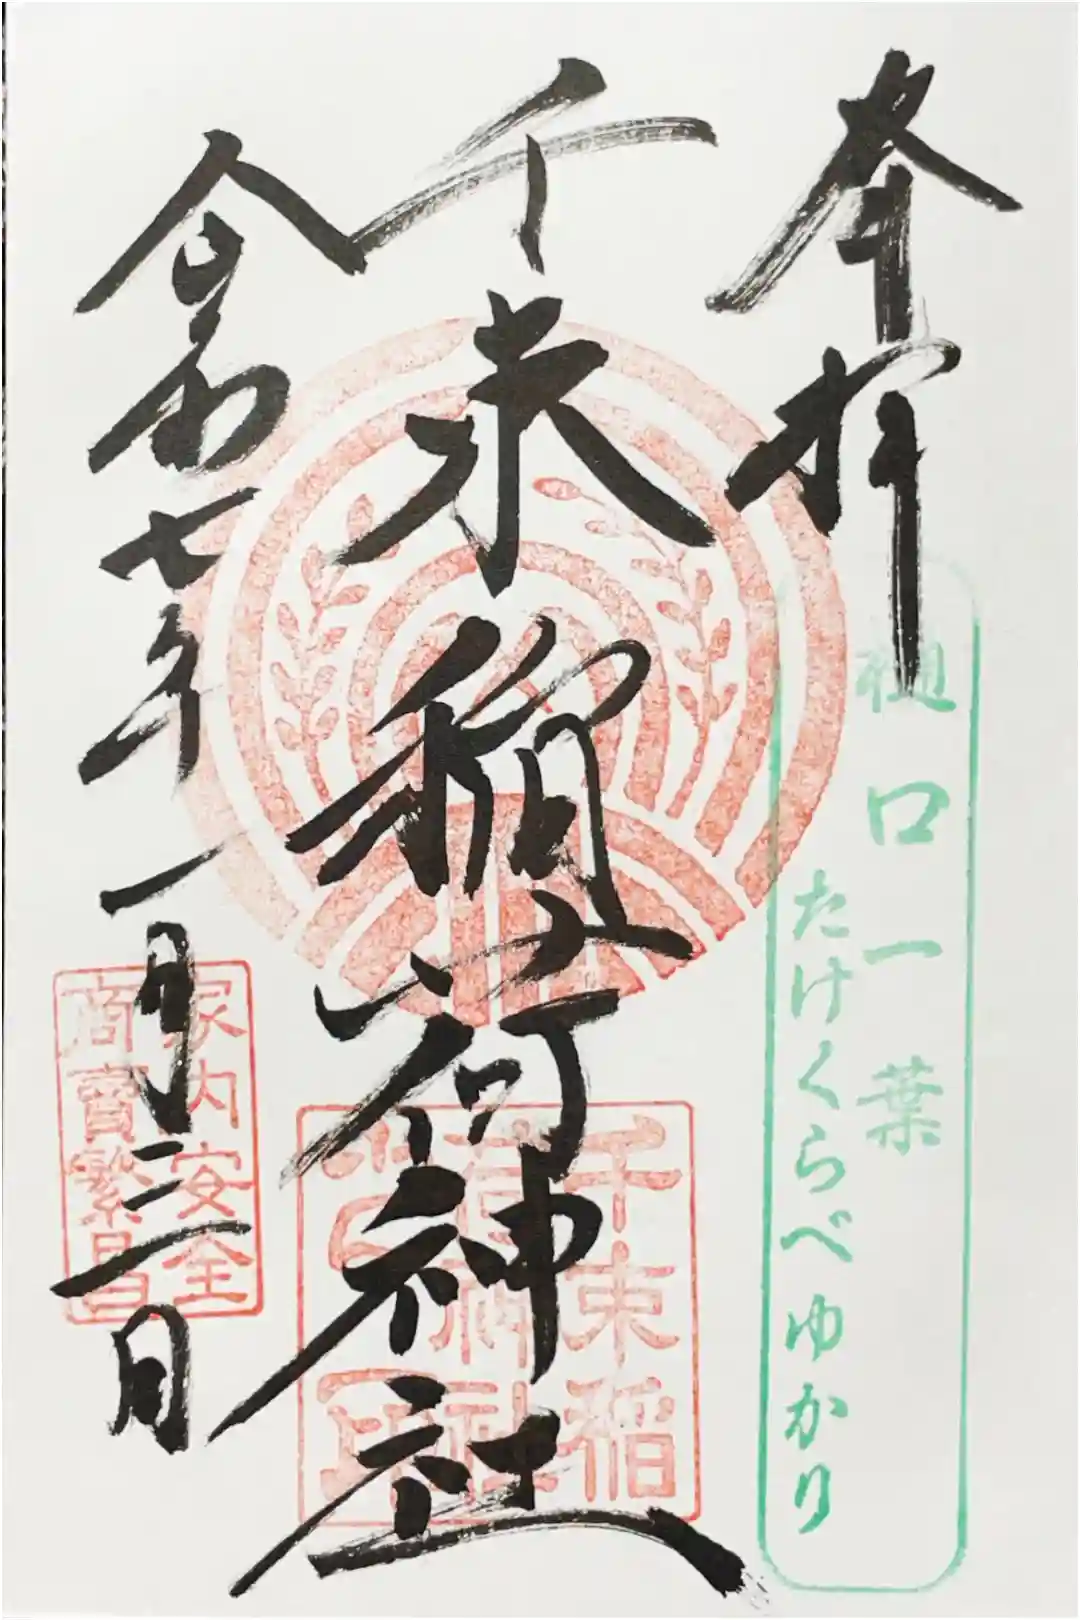 奉拝
樋口一葉
たけくらべゆかり
千束稲荷神社
千束稲
荷神社
印
令和七年一月三日
家内安全
商賣繁昌